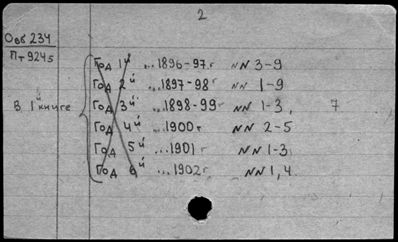 2
Обб 234
Пт 9245
В 1й книге
Год 1й ...1896-97г NN 3-9
Год 2й ...1897-98г NN 1-9
Год 3й ...1898-99г NN 1-3, 7
Год 4й ...1900г NN 2-5
Год 5й ...1901г NN 1-3
Год 6й ...1902г NN 1, 4.